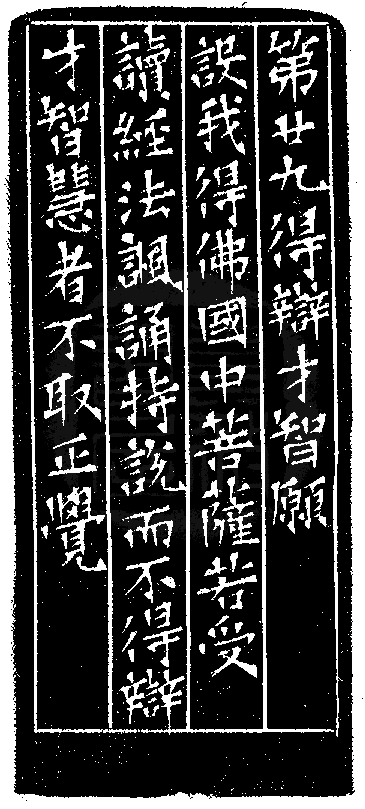 第廿九得辯才智願
設我得佛國中菩薩若受
讀經法諷誦持說而不得辯
才智慧者不取正覺